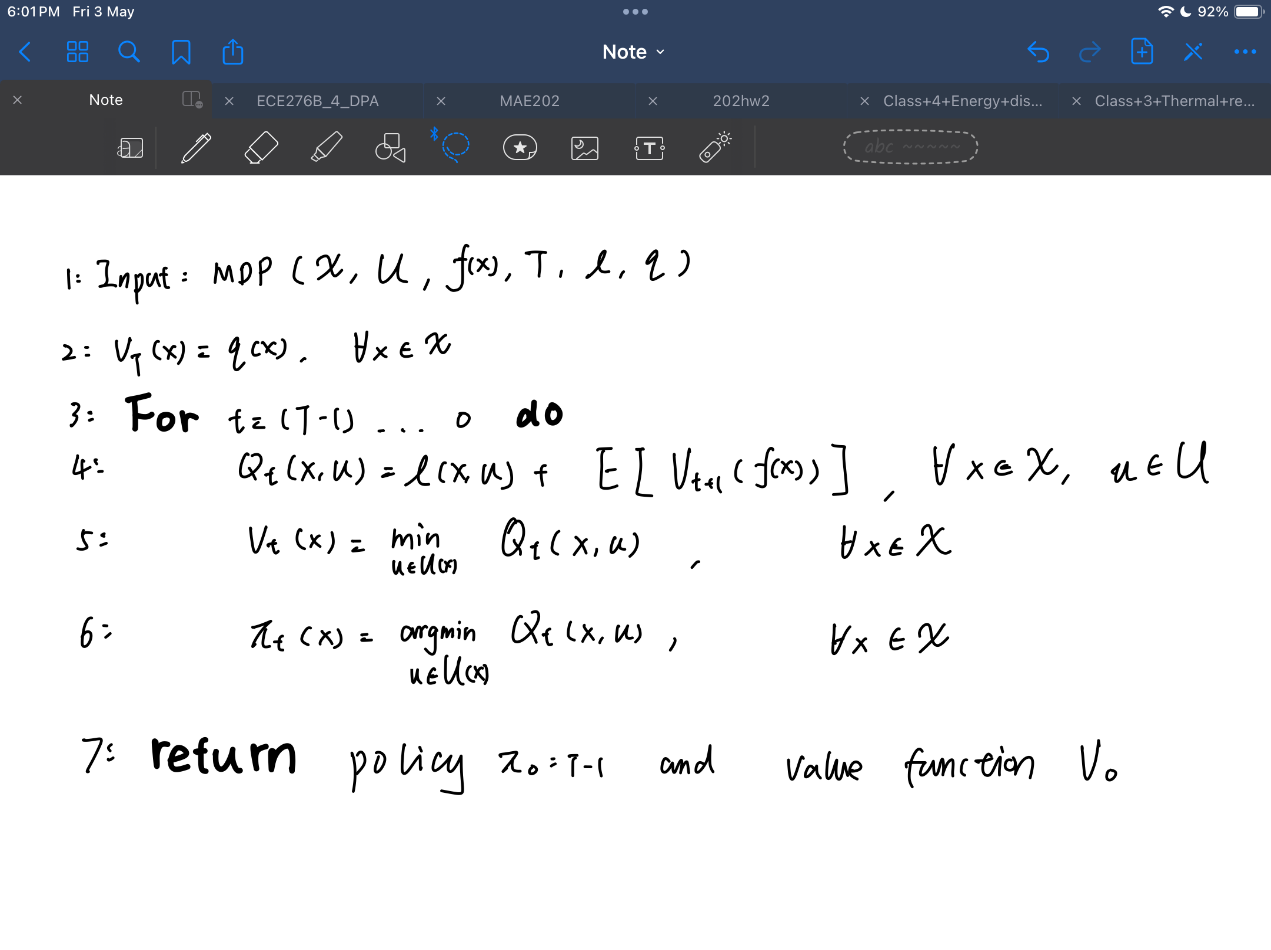 6:01 PM Fri 3 May 92%
Note
Note ECE276B_4_DPA MAE202 202hw2 Class+4+Energy+dis... Class+3+Thermal+re...
T abc ~~~~~
1: Input: MDP (𝒳, U, f(x), T, ℓ, q)
2: V_T (x) = q(x), ∀x ∈ 𝒳
3: For t = (T-1) ... 0 do
4: Q_t (x, u) = ℓ(x, u) + E [ V_{t+1} (f(x)) ], ∀x ∈ 𝒳, u ∈ U
5: V_t (x) = min_{u∈U(x)} Q_t (x, u), ∀x ∈ 𝒳
6: π_t (x) = argmin_{u∈U(x)} Q_t (x, u), ∀x ∈ 𝒳
7: return policy π_{0:T-1} and value function V_0